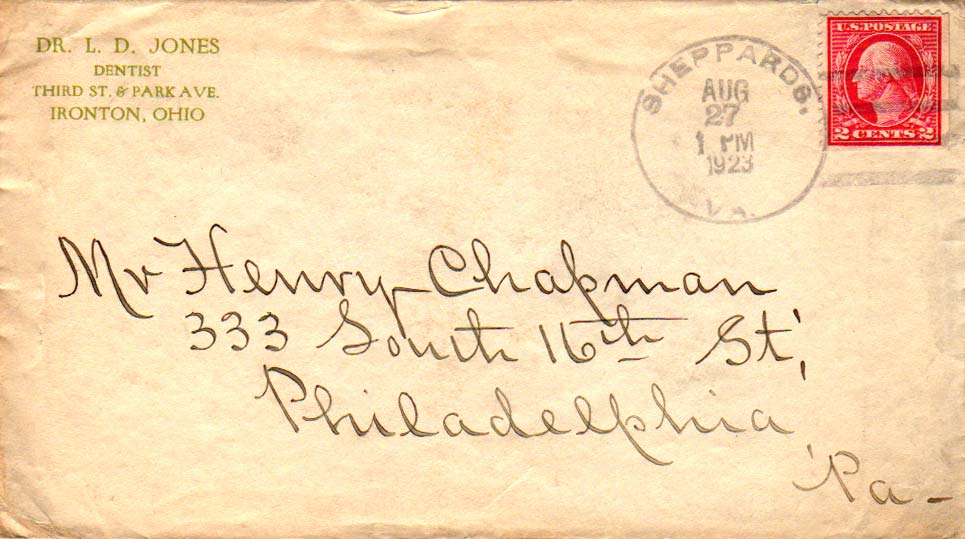 DR. L. D. JONES
DENTIST
THIRD ST. & PARK AVE.
IRONTON, OHIO
SHEPPARDS,
AUG
27
1 PM
1923
VA.
U.S. POSTAGE
2 CENTS 2
Mr Henry Chapman
333 South 16th St,
Philadelphia,
Pa-